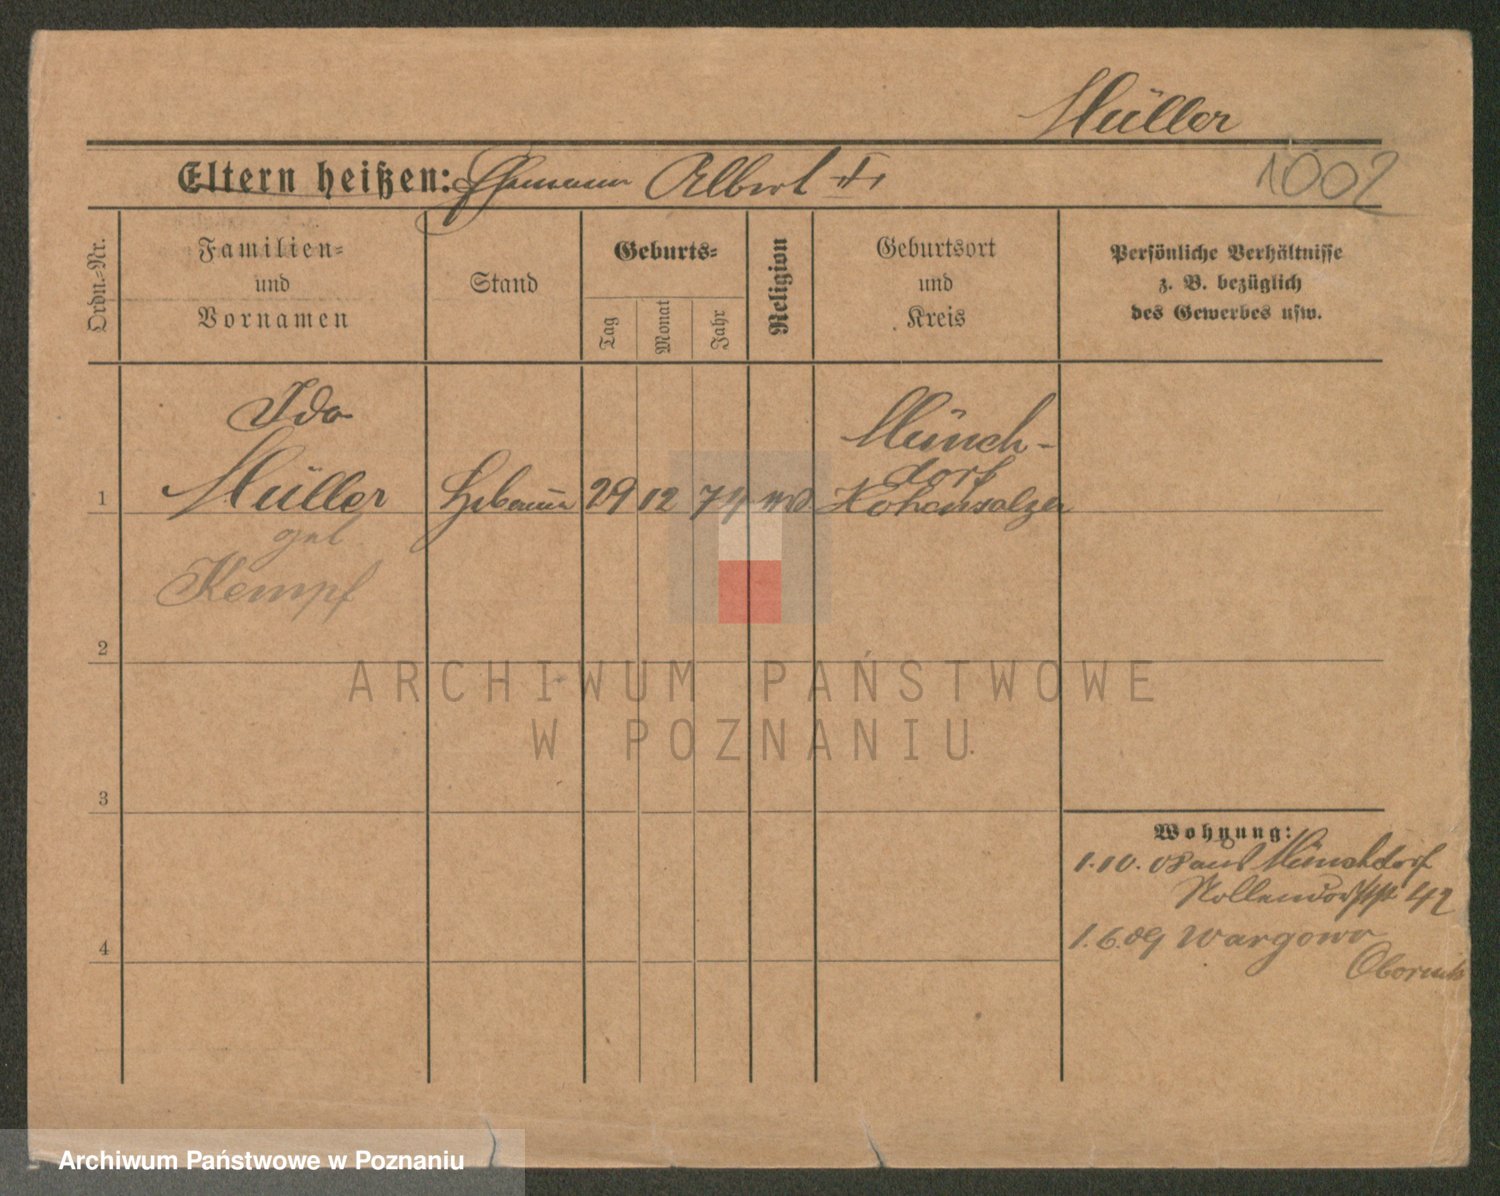 Müller
1002
Eltern heißen: Ehemann Albert
Ordn.-Nr.
Familien-
und
Vornamen
Stand
Geburts-
Tag
Monat
Jahr
Religion
Geburtsort
und
Kreis
Persönliche Verhältnisse
z. B. bezüglich
des Gewerbes usw.
Ida
Münch-
dorf
1 Müller 29 12 74 Hohensalzer
geb.
Kempf
2
ARCHIWUM PAŃSTWOWE
W POZNANIU
3
Wohnung:
1.10.08 aus Münchdorf
Nollendorfstr 42
4
1.6.09 Wargowo
Obornik
Archiwum Państwowe w Poznaniu